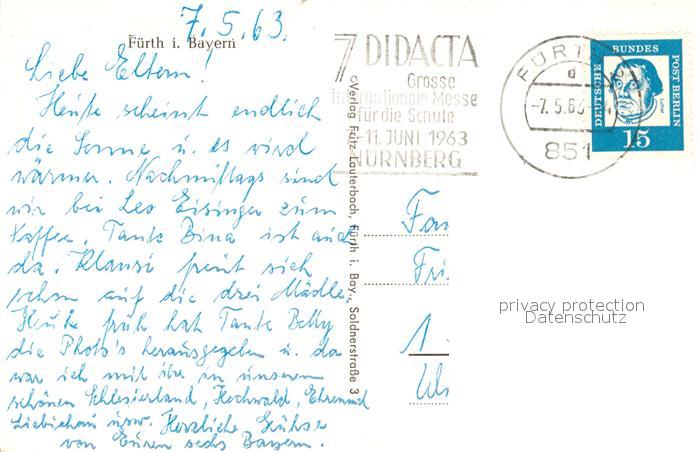 7.5.63.
Fürth i. Bayern
Liebe Eltern!
Heute scheint endlich
die Sonne u. es wird
wärmer. Nachmittags sind
wir bei Leo Eisinger zum
Kaffee. Tante Bina ist auch
da. Klausi freut sich
schon auf die drei Mädle.
Heute früh hat Tante Betty
die Photo's herausgegeben u. da
war ich mit ihr in unserem
schönen Schlesierland, Hochwald, Ehrenmal
Liebichau usw. Herzliche Grüsse
von Euren sechs Bayern.
©Verlag Fritz Lauterbach, Fürth i. Bay., Soldnerstraße 3
7 DIDACTA
Grosse
Internationale Messe
für die Schule
-11. JUNI 1963
NÜRNBERG
FÜRTH
d
-7. 5. 63
851
DEUTSCHE BUNDESPOST BERLIN
15
Fri
1
privacy protection
Datenschutz